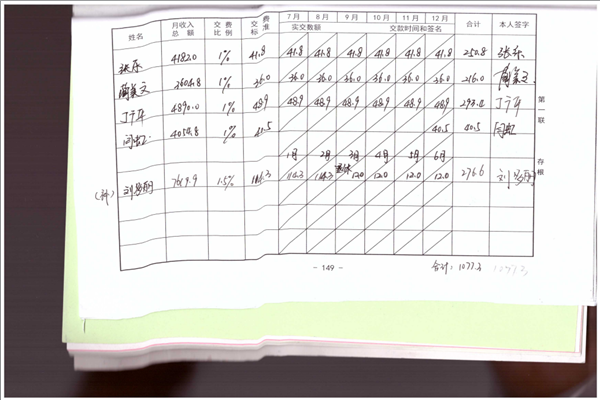 姓名 月收入总额 交费比例 交费标准 7月 8月 9月 10月 11月 12月 合计 本人签字
实交数额 交款时间和签名
张乐 4182.0 1% 41.8 41.8 41.8 41.8 41.8 41.8 41.8 250.8 张乐
3604.8 1% 36.0 36.0 36.0 36.0 36.0 36.0 36.0 216.0
4890.0 1% 48.9 48.9 48.9 48.9 48.9 48.9 48.9 293.4
闫虹 4054.8 1% 40.5 40.5 闫虹
1月 2月 3月 4月 5月 6月
(补) 刘 7619.9 1.5% 114.3 114.3 114.3 退休 12.0 12.0 12.0 12.0 276.6 刘
第一联 存根
- 149 -
合计: 1077.3 1077.3